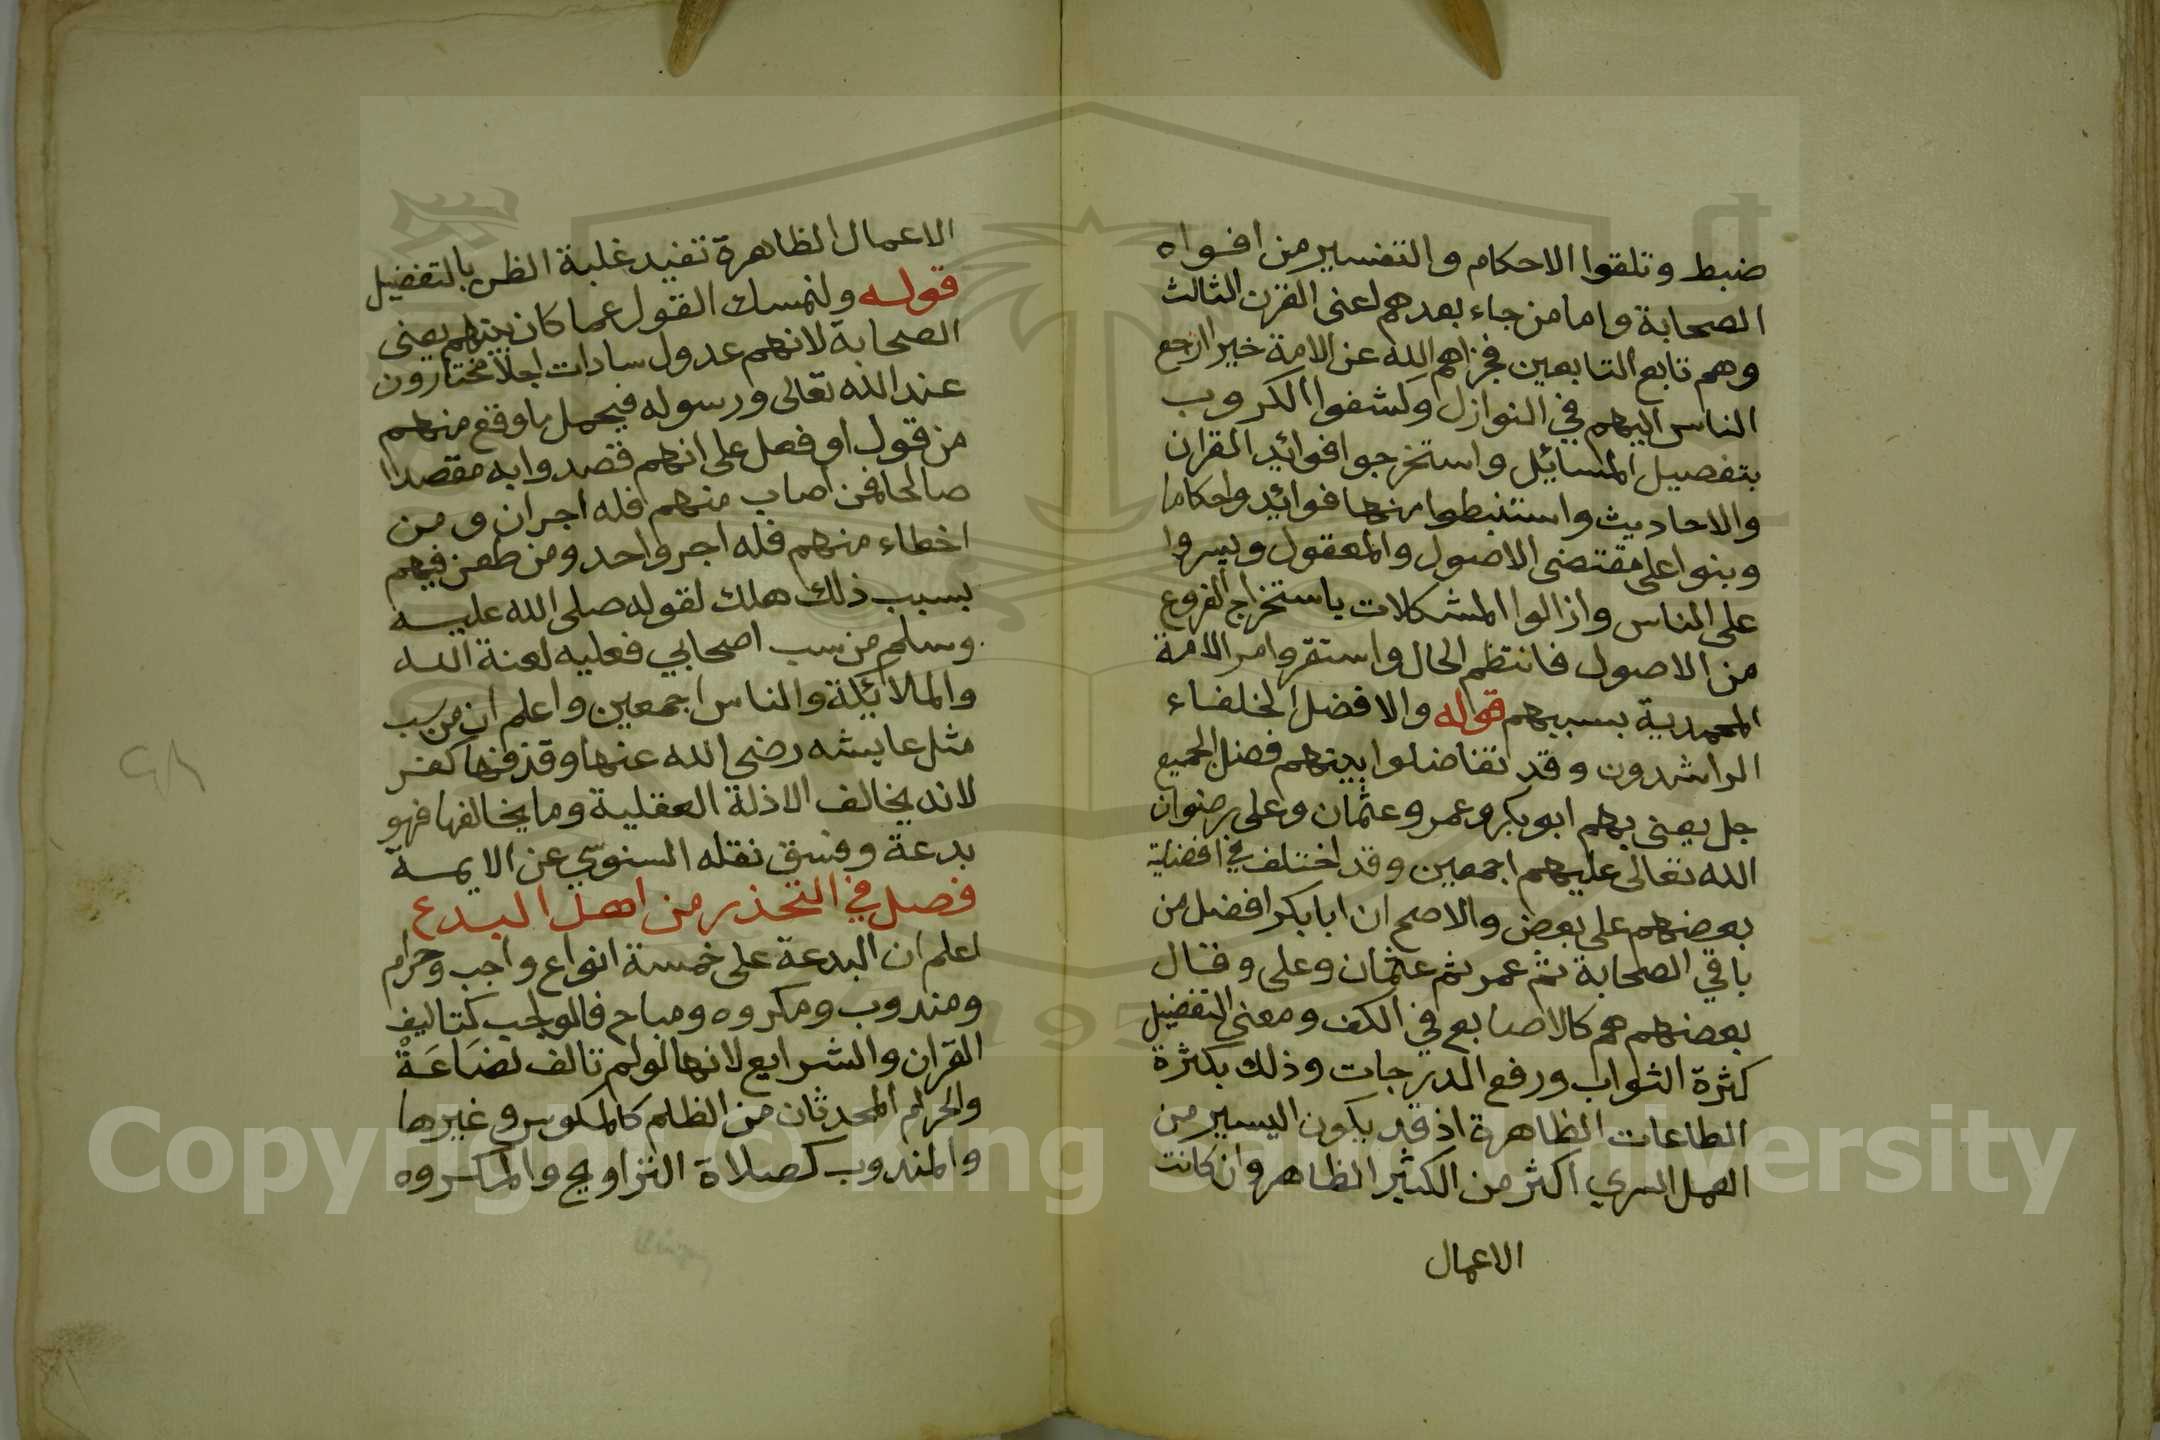 ضبط وتلقوا الاحكام والتفسير من افواه
الصحابة واما من جاء بعدهم لعنى القرن الثالث
وهم تابع التابعين فجزاهم الله عن الامة خيرا ارجع
الناس اليهم في النوازل وكشفوا الكروب
بتفصيل المسائيل واستخرجوا فوائد القران
والاحاديث واستنبطوا منها فوائد واحكاما
وبنوا على مقتضى الاصول والمعقول ويسروا
على الناس وازالوا المشكلات باستخراج الفروع
من الاصول فانتظم الحال واستقر امر الامة
المحمدية بسببهم قوله والافضل الخلفاء
الراشدون وقد تفاضلوا بينهم فضل الجميع
جل يعنى بهم ابو بكر وعمر وعثمان وعلى رضوان
الله تعالى عليهم اجمعين وقد اختلف في افضلية
بعضهم على بعض والاصح ان ابا بكر افضل من
باقي الصحابة ثم عمر ثم عثمان وعلى وقال
بعضهم هم كالاصابع في الكف ومعنى التفضيل
كثرة الثواب ورفع الدرجات وذلك بكثرة
الطاعات الظاهرة اذ قد يكون اليسير من
العمل السري اكثر من الكثير الظاهر وان كانت
الاعمال
الاعمال الظاهرة تفيد غلبة الظن بالتفضيل
قوله ولنمسك القول عما كان بينهم يعنى
الصحابة لانهم عدول سادات اجلا مختارون
عند الله تعالى ورسوله فيحمل ما وقع منهم
من قول او فعل على انهم قصدوا به مقصدا
صالحا فمن اصاب منهم فله اجران ومن
اخطاء منهم فله اجر واحد ومن طعن فيهم
بسبب ذلك هلك لقوله صلى الله عليه
وسلم من سب اصحابي فعليه لعنة الله
والملائكة والناس اجمعين واعلم ان من سب
مثل عايشه رضى الله عنها وقذفها كفر
لانه يخالف الادلة العقلية وما يخالفها فهو
بدعة وفسق نقله السنوسي عن الايمة
فصل في التحذر من اهل البدع
اعلم ان البدعة على خمسة انواع واجب وحرام
ومندوب ومكروه ومباح فالواجب كتاليف
القران والشرايع لانها لو لم تالف لضاعة
والحرام المحدثان من الظلم كالمكوس وغيرها
والمندوب كصلاة التراويح والمكروه
٢٨
Copyright © King Saud University
1957